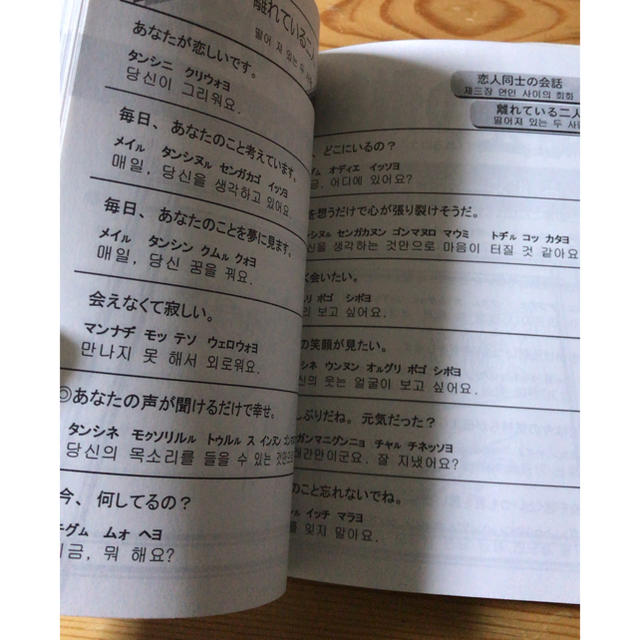 離れている二人
떨어져 있는 두 사
あなたが恋しいです。
タンシニ クリウォヨ
당신이 그리워요.
毎日、あなたのこと考えています。
メイル タンシヌル センガカゴ イッソヨ
매일, 당신을 생각하고 있어요.
毎日、あなたのことを夢に見ます。
メイル タンシン クムル クォヨ
매일, 당신 꿈을 꿔요.
会えなくて寂しい。
マンナヂ モッ テソ ウェロウォヨ
만나지 못 해서 외로워요.
◎あなたの声が聞けるだけで幸せ。
タンシネ モクソリルル トゥルル ス インヌン
당신의 목소리를 들을 수 있는 것만으
今、何してるの？
チグム ムォ ヘヨ
지금, 뭐 해요?
恋人同士の会話
제드장 연인 사이의 회화
離れている二人
떨어져 있는 두 사
、どこにいるの？
オディエ イッソヨ
금, 어디에 있어요?
を想うだけで心が張り裂けそうだ。
シヌル センガカヌン ゴンマヌロ マウミ トヂル コッ カタヨ
신을 생각하는 것만으로 마음이 터질 것 같아요
く会いたい。
リ ポゴ シポヨ
리 보고 싶어요.
の笑顔が見たい。
シネ ウンヌン オルグリ ポゴ シポヨ
신의 웃는 얼굴이 보고 싶어요.
しぶりだね。元気だった？
ガンマニグンニョ チャル チネッソヨ
래간만이군요. 잘 지냈어요?
のこと忘れないでね。
ル イッチ マラヨ
를 잊지 말아요.